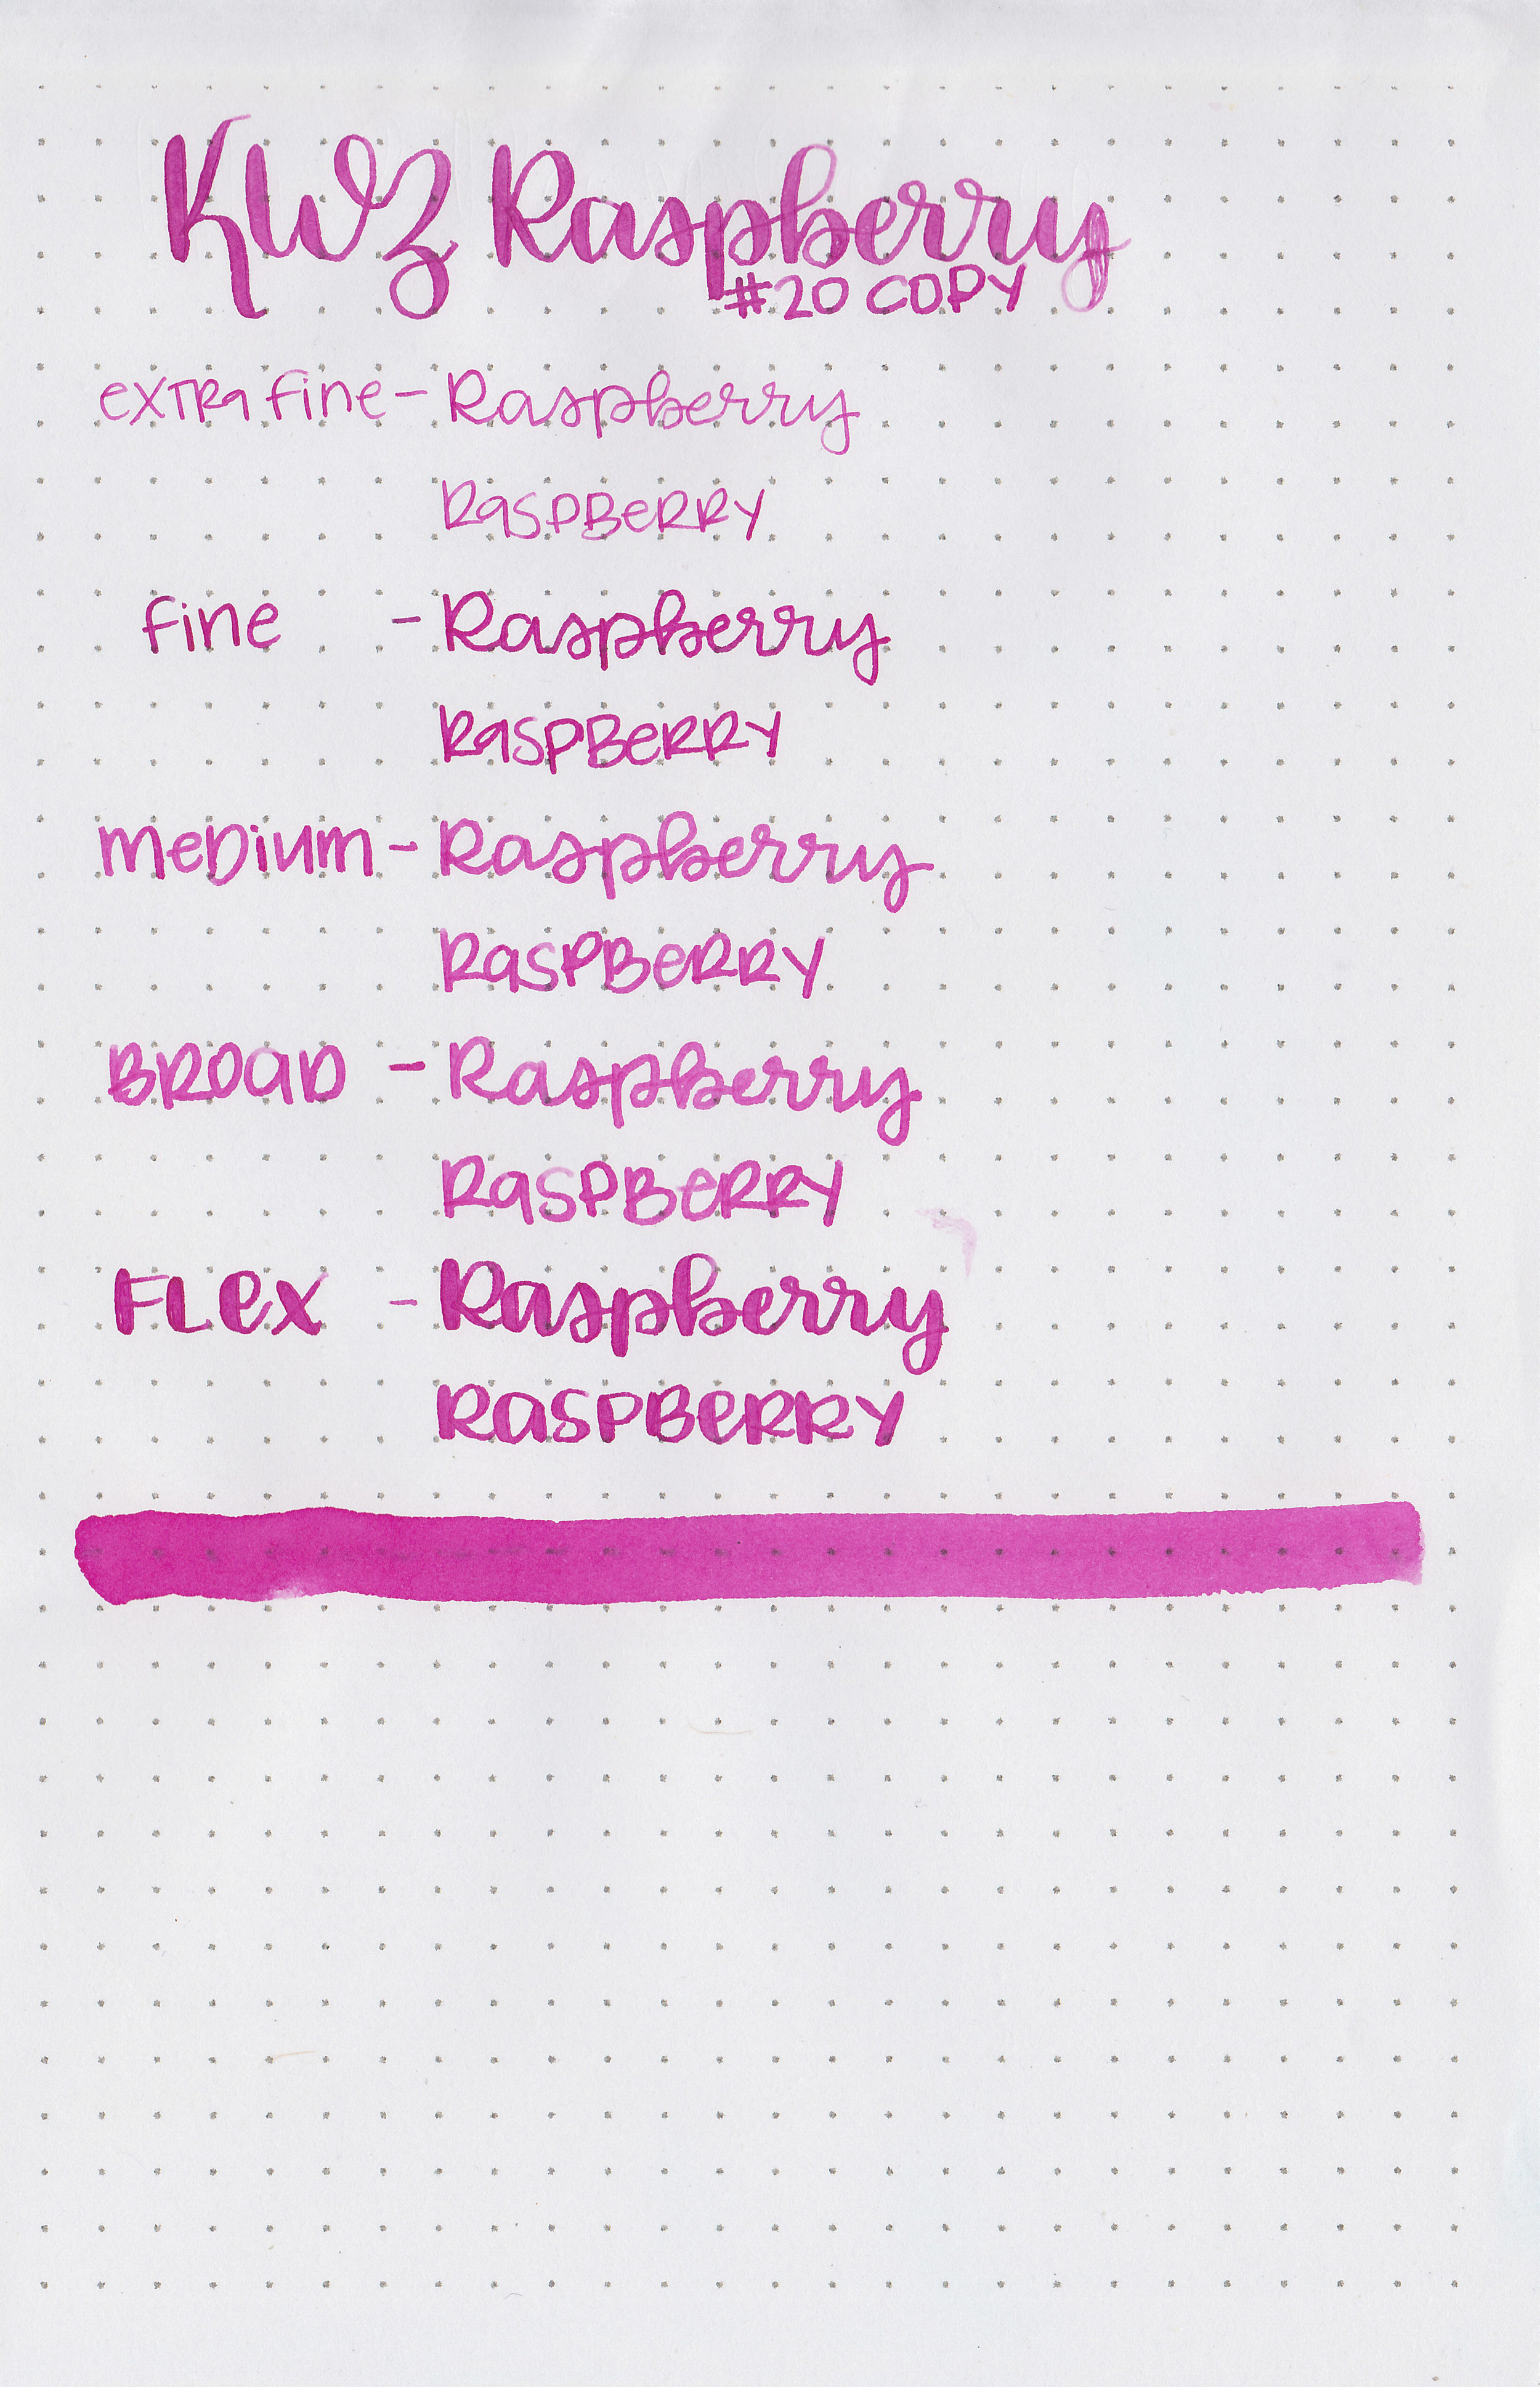 KWZ Raspberry
#20 COPY
exTRa fine - Raspberry
RaSPBeRRY
fine - Raspberry
RaSPBeRRY
meDium - Raspberry
RaSPBeRRY
BROaD - Raspberry
RaSPBeRRY
FLex - Raspberry
RaSPBeRRY